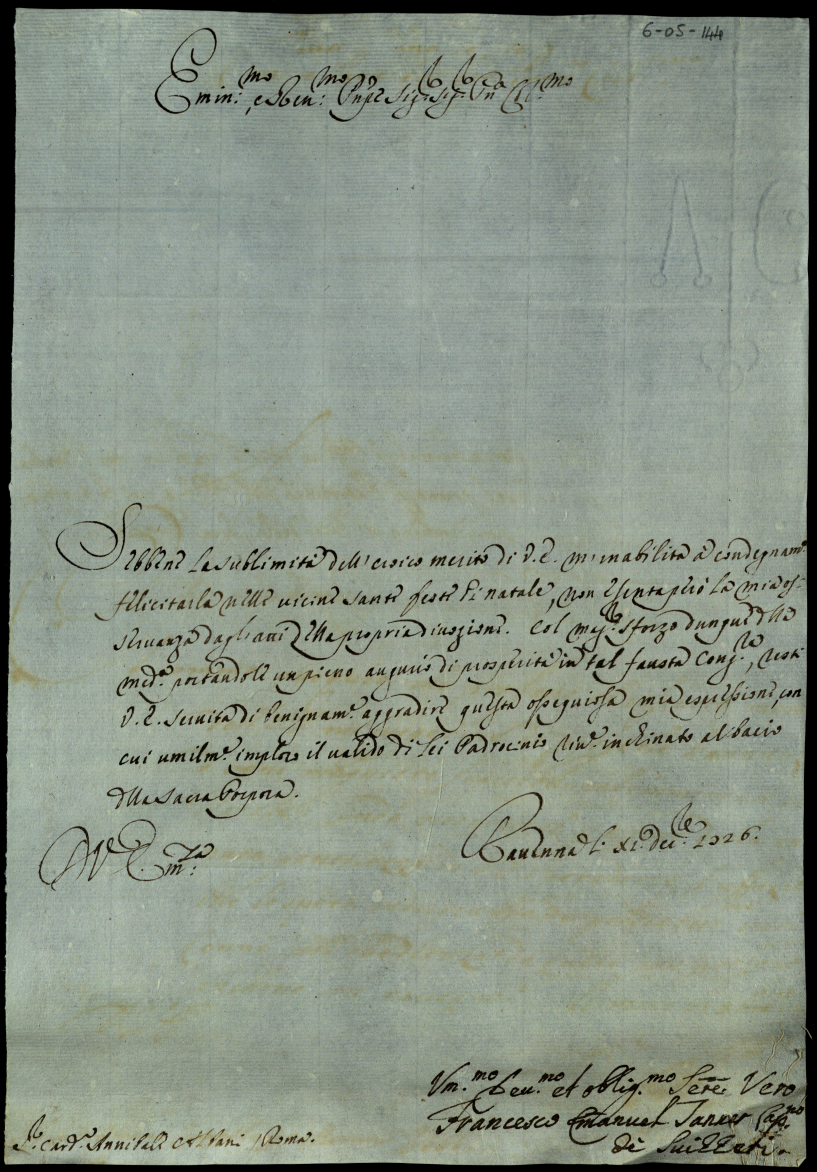 6-05-144
Emin:mo, e Reu:mo Pnpe Sig:r Sig:r Pn Col:mo
Sebbene la sublimità dell'eroico merito di V.E. m'innabilita à condegnam.e
felicitarla nelle vicine sante feste di natale, non esenta però la mia os-
seruanza dagli atti della propria diuozione. Col mag.r sforzo dunque della
med.a portandole un pieno augurio di prosperità in tal fausta Cong.ra, resti
V.E. seruita di benignam.e aggradire questa ossequiosa mia espressione, con
cui umilm.e imploro il valido di Lei Padrocinio riu.e inchinato al bacio
della Sacra Porpora.
D V. E. m:za
Rauenna li XI. dec:bre 1726.
Vm.mo Deu.mo et oblig.mo Sere: Vero
Francesco Emanuel Cap.no
de
S.r Card.l Annibale Albani / Roma.